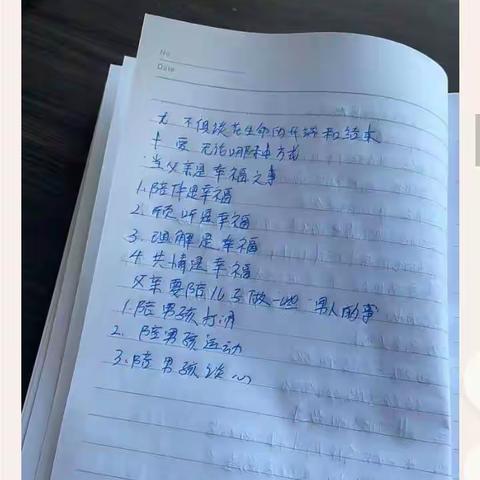 No
Date
九 不但谈克生命的开端和结束
十 爱 无论哪种方式
当父亲是幸福之事
1.陪伴是幸福
2.倾听是幸福
3.理解是幸福
4.共情是幸福
父亲要陪儿子做一些 男人的事
1.陪男孩
2.陪男孩运动
3.陪男孩谈心